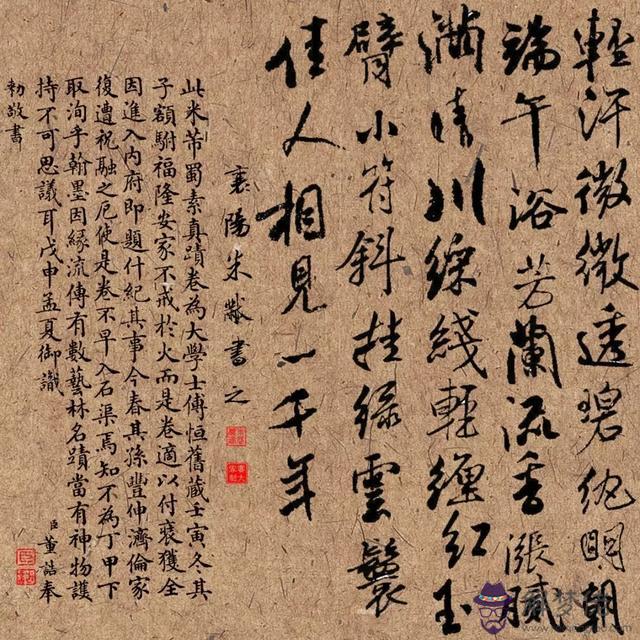 輕汗微微透碧紈明朝
端午浴芳蘭流香漲膩
滿晴川綵綫輕纏紅玉
臂小符斜挂綠雲鬟
佳人相見一千年
襄陽米黻書之
此米芾蜀素真蹟卷為大學士傅恒舊藏壬寅冬其
子額駙福隆安家不戒於火而是卷適以付裱獲全
因進入內府即題什紀其事今春其孫豐伸濟倫家
復遭祝融之厄使是卷不早入石渠焉知不為丁甲下
取洵乎翰墨因緣流傳有數藝林名蹟當有神物護
持不可思議耳戊申孟夏御識
臣董誥奉
勅敬書